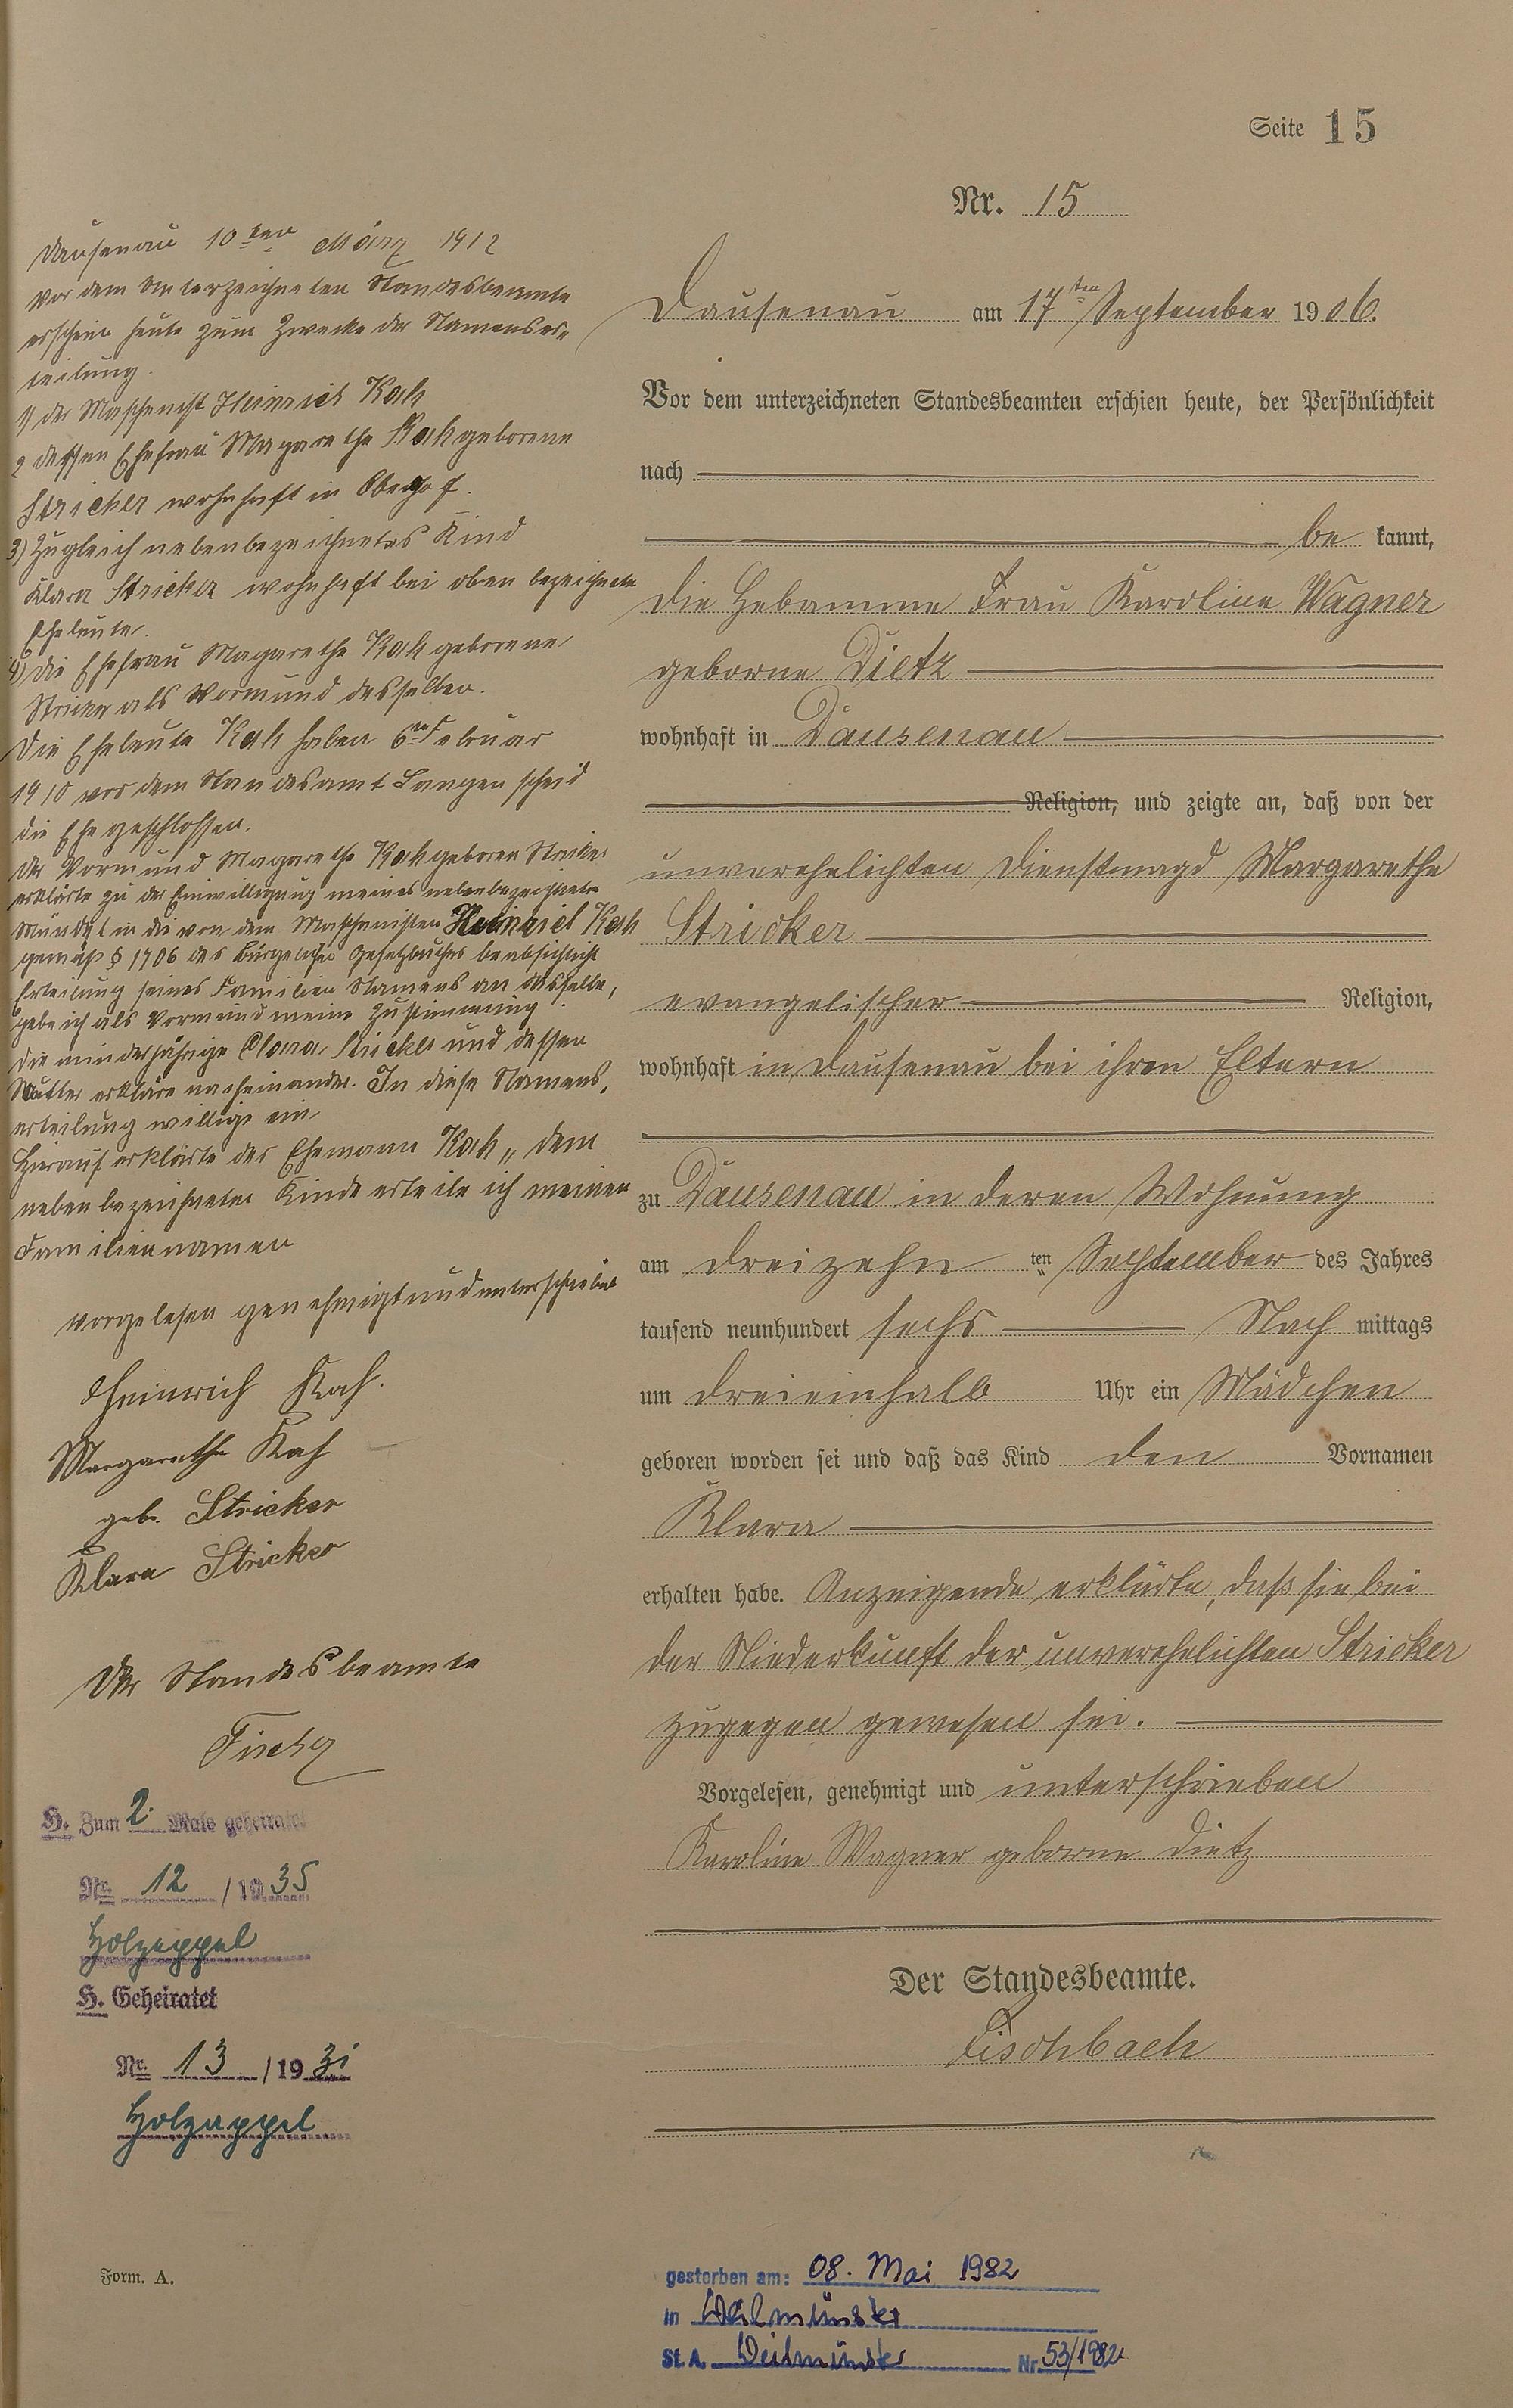 Seite 15
Nr. 15
Dausenau am 17ten September 1906.
Vor dem unterzeichneten Standesbeamten erschien heute, der Persönlichkeit
nach
be kannt,
die Hebamme Frau Karoline Wagner
geborne Dietz
wohnhaft in Dausenau
Religion, und zeigte an, daß von der
unverehelichten Dienstmagd Margarethe
Stricker
evangelischer Religion,
wohnhaft in Dausenau bei ihren Eltern
zu Dausenau in deren Wohnung
am dreizehn ten September des Jahres
tausend neunhundert sechs Nach mittags
um dreieinhalb Uhr ein Mädchen
geboren worden sei und daß das Kind den Vornamen
Klara
erhalten habe. Anzeigende erklärte, daß sie bei
der Niederkunft der unverehelichten Stricker
zugegen gewesen sei.
Vorgelesen, genehmigt und unterschrieben
Karoline Wagner geborne Dietz
Der Standesbeamte.
Fischbach
Dausenau 10ten März 1912
Vor dem Unterzeichneten Standesbeamte
erschien heute zum Zwecke der Namenser„
teilung.
1) der Maschenist Heinrich Kah
2 dessen Ehefrau Magarethe Kah geborene
Stricker wohnhaft in Oberhof.
3) Zugleich nebenbezeichnetes Kind
Klara Stricker wohnhaft bei oben bezeichnete
Eheleute.
4) die Ehefrau Magarethe Kah geborene
Stricker als Vormund desselben.
Die Eheleute Kah haben 6ten Februar
1910 vor dem Standesamt Langenscheid
die Ehe geschlossen.
Der Vormund Magarethe Kah geboren Stricker
erklärte zu der Einwilligung meines nebenbezeichneten
Mündel in die von dem Maschenisten Heinrich Kah
gemäß § 1706 des Bürgerlichen Gesetzbuches beabsichtigt
Erteilung seines Familien Namens an dasselbe,
gebe ich als Vormund meine Zustimmung.
Die minderjährige Clara Stricker und dessen
Mutter erkläre nacheinander. In diese Namens„
erteilung willige ein
Hierauf erklärte der Ehemann Kah „ dem
nebenbezeichneten Kinde erteile ich meinen
Familiennamen
vorgelesen genehmigt und unterschrieben
Heinrich Kah.
Margarethe Kah
geb. Stricker
Klara Stricker
Der Standesbeamte
Fischer
H. Zum 2. Male geheiratet
Nr. 12 / 1935
Holzappel
H. Geheiratet
Nr. 13 / 1931
Holzappel
Form. A.
gestorben am: 08. Mai 1982
in Weilmünster
St. A. Weilmünster Nr. 53/1982